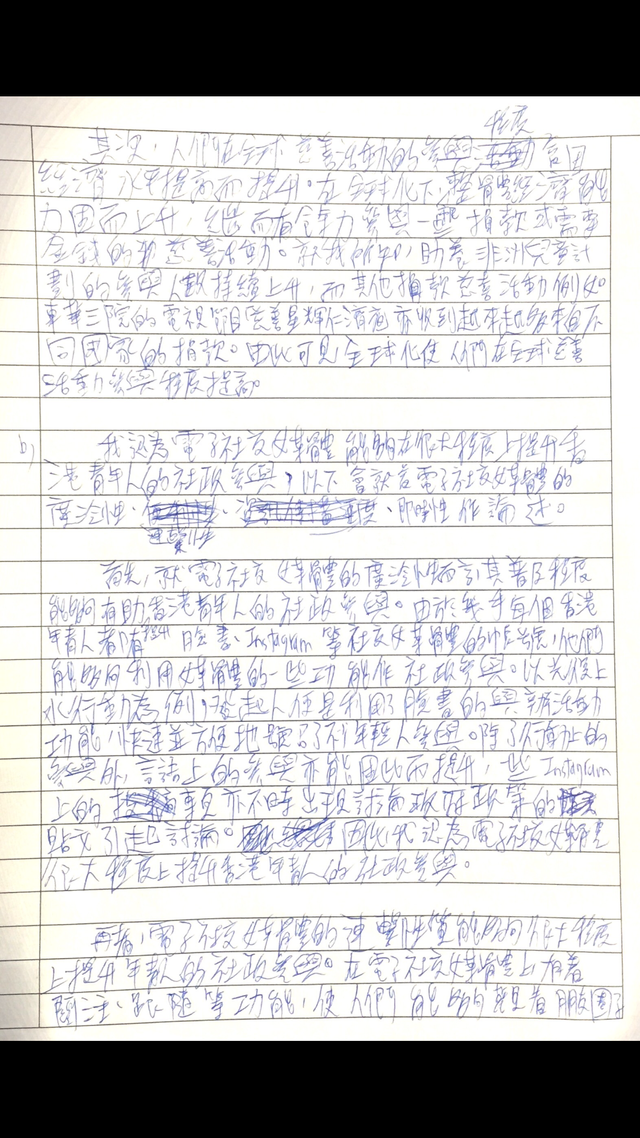 程度
其次,人們在全球慈善活動的參與會因
經濟水平提高而提升。在全球化下,整體經濟能
力因而上升,繼而有餘力參與一些捐款或需要
金錢的慈善活動。就我所知,助養非洲兒童計
劃的參與人數持續上升,而其他捐款慈善活動例如
東華三院的電視節目慈善星輝仁濟夜亦收到越來越多來自不
同國家的捐款。由此可見全球化使人們在全球慈善
活動參與程度提高。
b) 我認為電子社交媒體能夠在很大程度上提升香
港青年人的社政參與,以下會就着電子社交媒體的
廣泛性、連繫性、即時性作論述。
首先,就電子社交媒體的廣泛性而言其普及程度
能夠有助香港青年人的社政參與。由於幾乎每個香港
年青人都有臉書、Instagram等社交媒體的帳號,他們
能夠利用媒體的一些功能作社政參與。以光復上
水行動為例,發起人便是利用了臉書的興辦活動
功能,快速並方便地號召到年輕人參與。除了行動上的
參與外,言語上的參與亦能因此而提升,一些Instagram
上的專頁亦不時出現討論政府政策的
貼文引起討論。因此我認為電子社交媒體
很大程度上提升香港年青人的社政參與。
再者,電子社交媒體的連繫性質能夠很大程度
上提升年青人的社政參與。在電子社交媒體上有着
關注、跟隨等功能,使人們能夠朝着朋友圈子